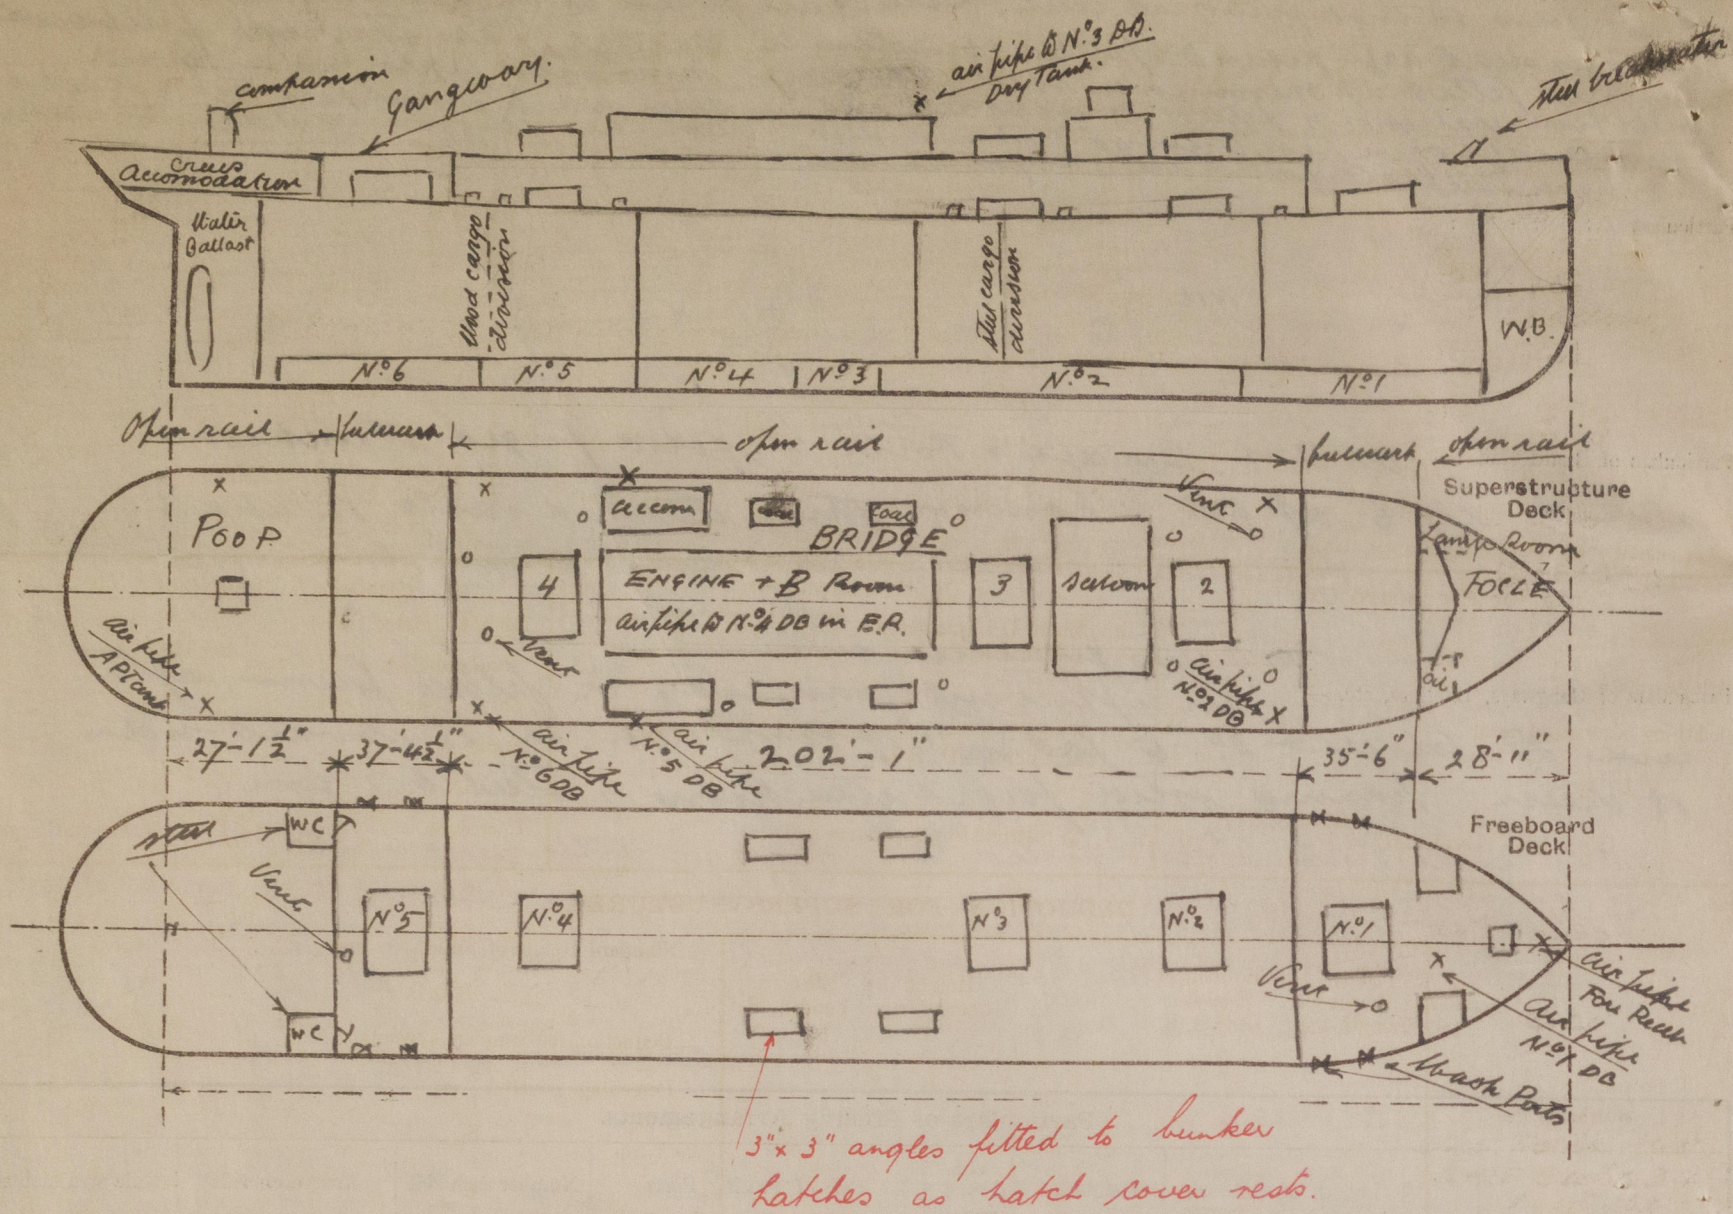 companion
Gangway.
air pipe to Nº 3 DB.
Dry Tank.
steel breakwater
Crews
Accomodation
Water
Ballast
Wood cargo
division
steel cargo
division
W.B.
Nº 6
Nº 5
Nº 4
Nº 3
Nº 2
Nº 1
Open rail
bulwark
open rail
bulwark
open rail
Superstructure
Deck
POOP
accom
coal
BRIDGE
Vent
Lamp Room
FOCLE
4
ENGINE + B Room
air pipe to Nº 4 DB in E.R.
3
saloon
2
air pipe
AP Tank
Vent
air pipe
Nº 2 DB
oil
27'-1½"
37'-4½"
air pipe
Nº 6 DB
air pipe
Nº 5 DB
202'-1"
35'-6"
28'-11"
Freeboard
Deck
steel
WC
Vent
Nº 5
Nº 4
Nº 3
Nº 2
Nº 1
WC
Vent
air pipe
Fore Peak
Air pipe
Nº 1 DB
Wash Ports
3" x 3" angles fitted to bunker
hatches as hatch cover rests.